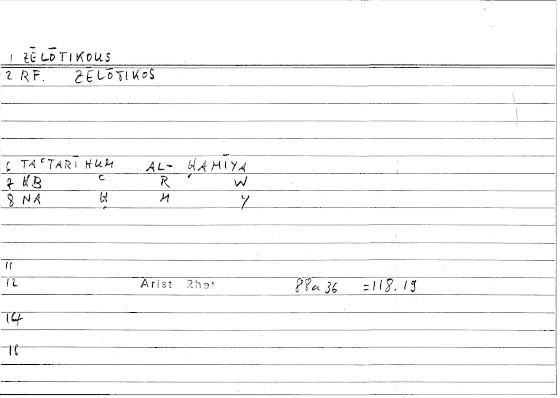 1 ZĒLŌTIKOUS
2 RF. ZĒLŌTIKOS
6 TAʿTARĪHUM AL- ḤAMĪYA
7 ḤB ʿ R W
8 NA Ḥ M Y
11
12 Arist Rhet 88a36 =118.19
14
16